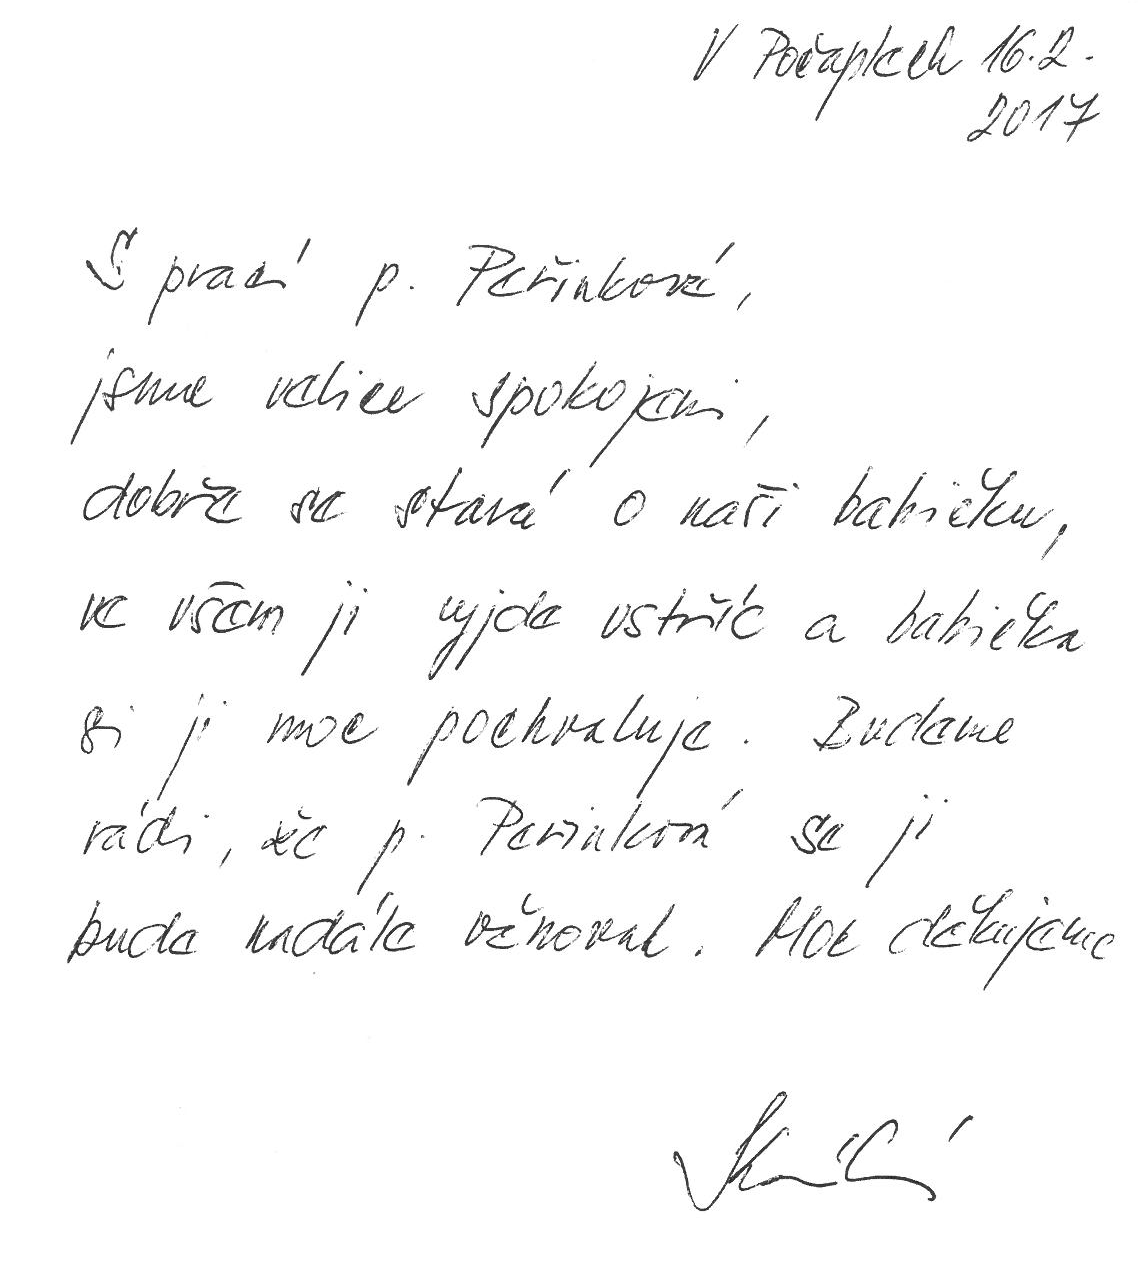 V Počaplech 16.2.
2017
S prací p. Peřinkové,
jsme velice spokojeni,
dobře se stará o naši babičku,
ve všem ji vyjde vstříc a babička
si ji moc pochvaluje. Budeme
rádi, že p. Peřinková se ji
bude nadále věnovat. Moc děkujeme